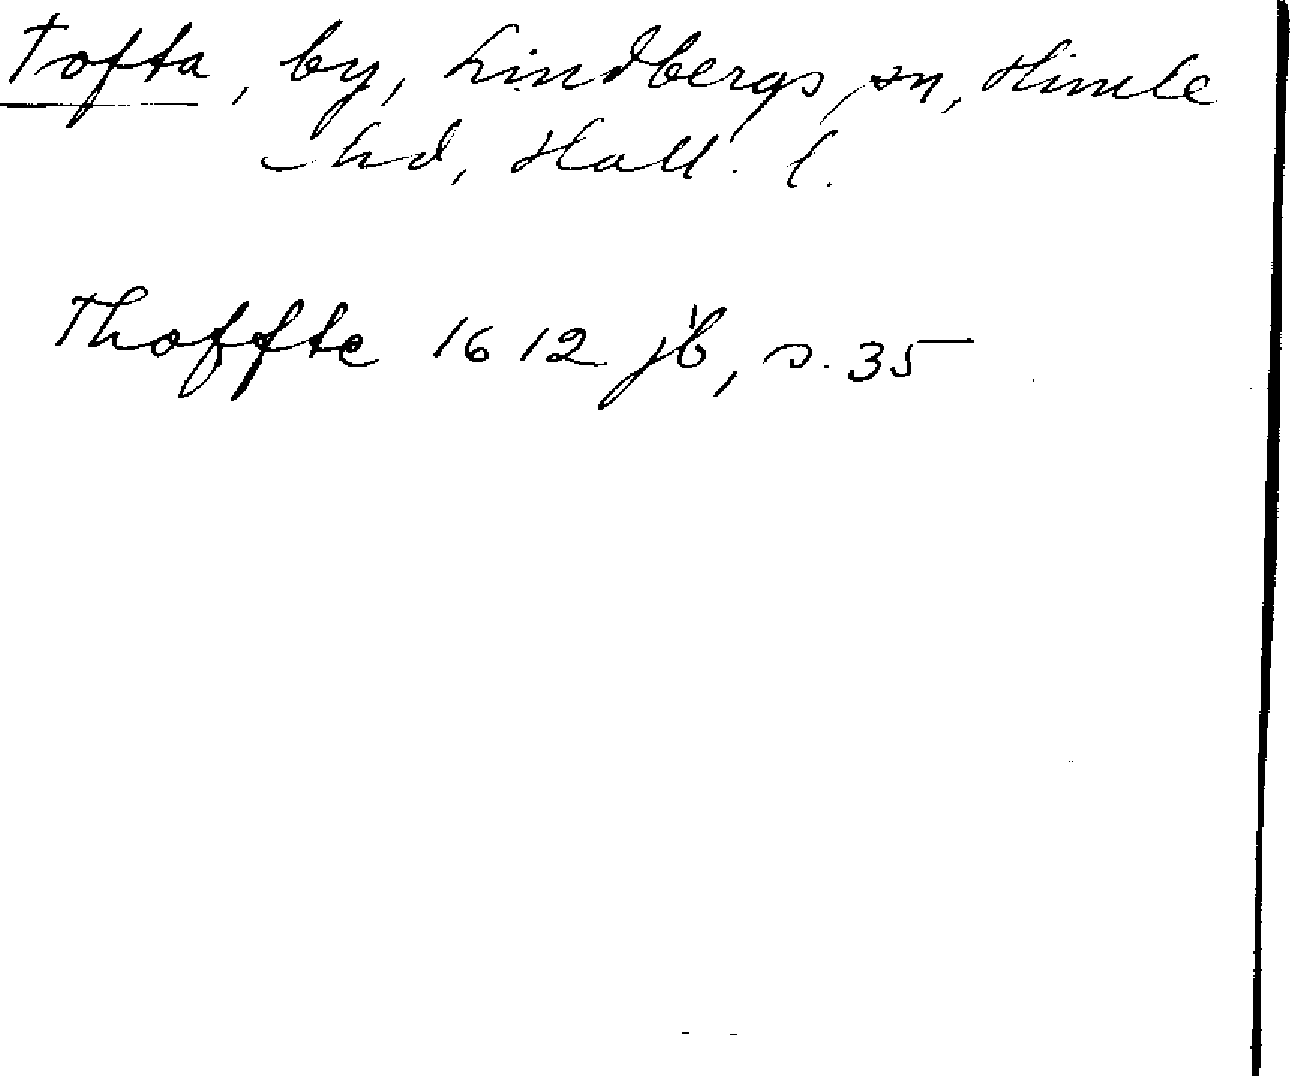 Tofta, by, Lindbergs sn, Himle
hd, Hall. l.
Thoffte 1612 jb, s. 35